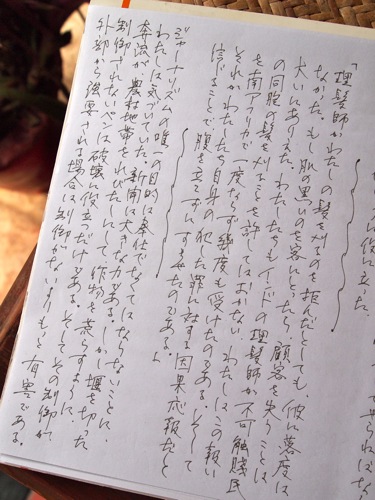 に役に立った。
「理髪師がわたしの髪を刈るのを拒んだとしても、彼に落度は
なかった。もし肌の黒いのを客にとったら、顧客を失うことは
大いにありえた。わたしたちもインドの理髪師が不可触賤民
の同胞の髪を刈ることを許してはおかない。わたしはこの報い
を南アフリカで一度ならず幾度も受けたのである。そして
それがわたしたち自身の犯した罪に対する因果応報だと
信ずることで、腹を立てずにすんだのである。」
ジャーナリズムの唯一の目的は奉仕でなくてはならないことに、
わたしは気づいていた。新聞は大きな力である。しかし、堰を切った
奔流が、農村地帯を水びたしにして作物を荒らすように、
制御されないペンは破壊に役立つだけである。そしてその制御が
外部から強要される場合は制御がないよりも有害である。